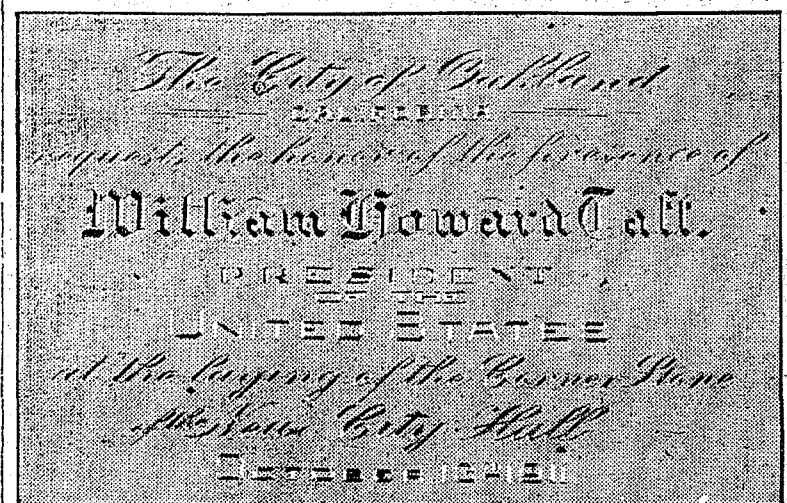 The City of Oakland
CALIFORNIA
requests the honor of the presence of
William Howard Taft.
PRESIDENT
OF THE
UNITED STATES
at the laying of the Corner Stone
of the New City Hall